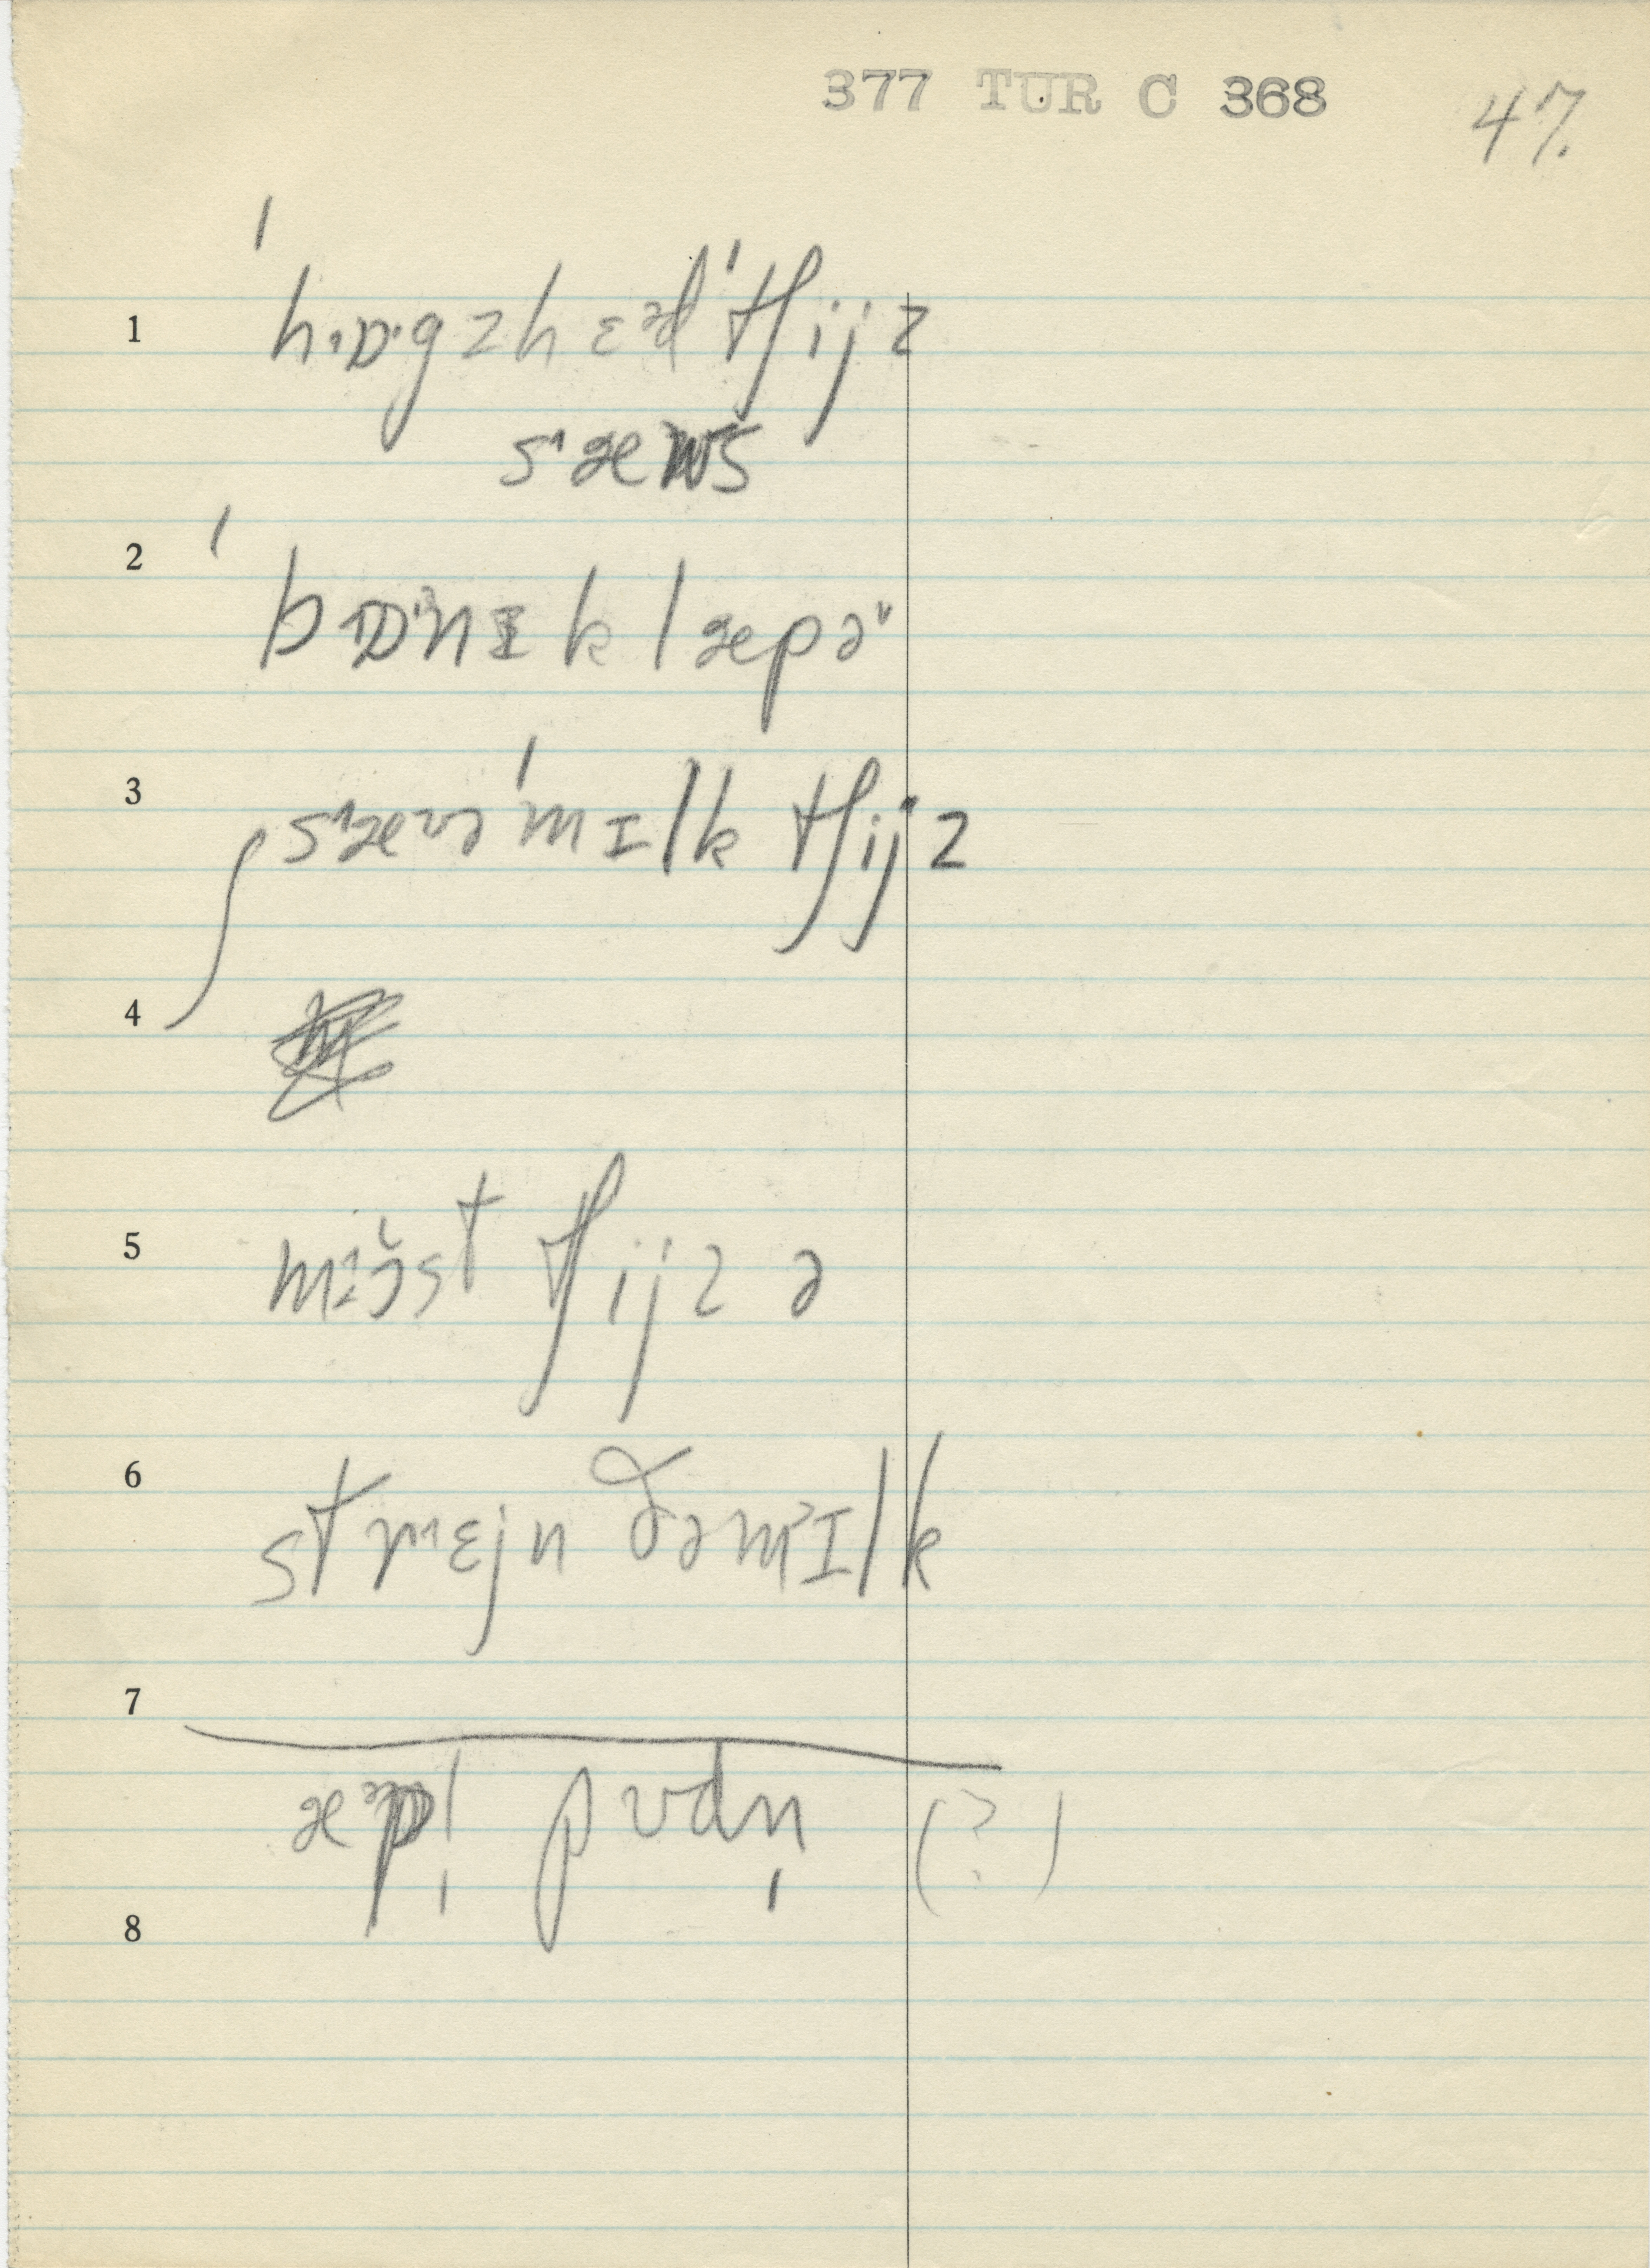 377 TUR C 368
47.
1 ˈhɒgzhɛədˈtʃijz
sæws
2 ˈbɒnɪklæpə
3 sævəˈmɪlk tʃijz
4
5 mɔ̆st tʃijzə
6 strɛjn ðəmɪlk
7
æpl̩ pʊdn̩ (?)
8